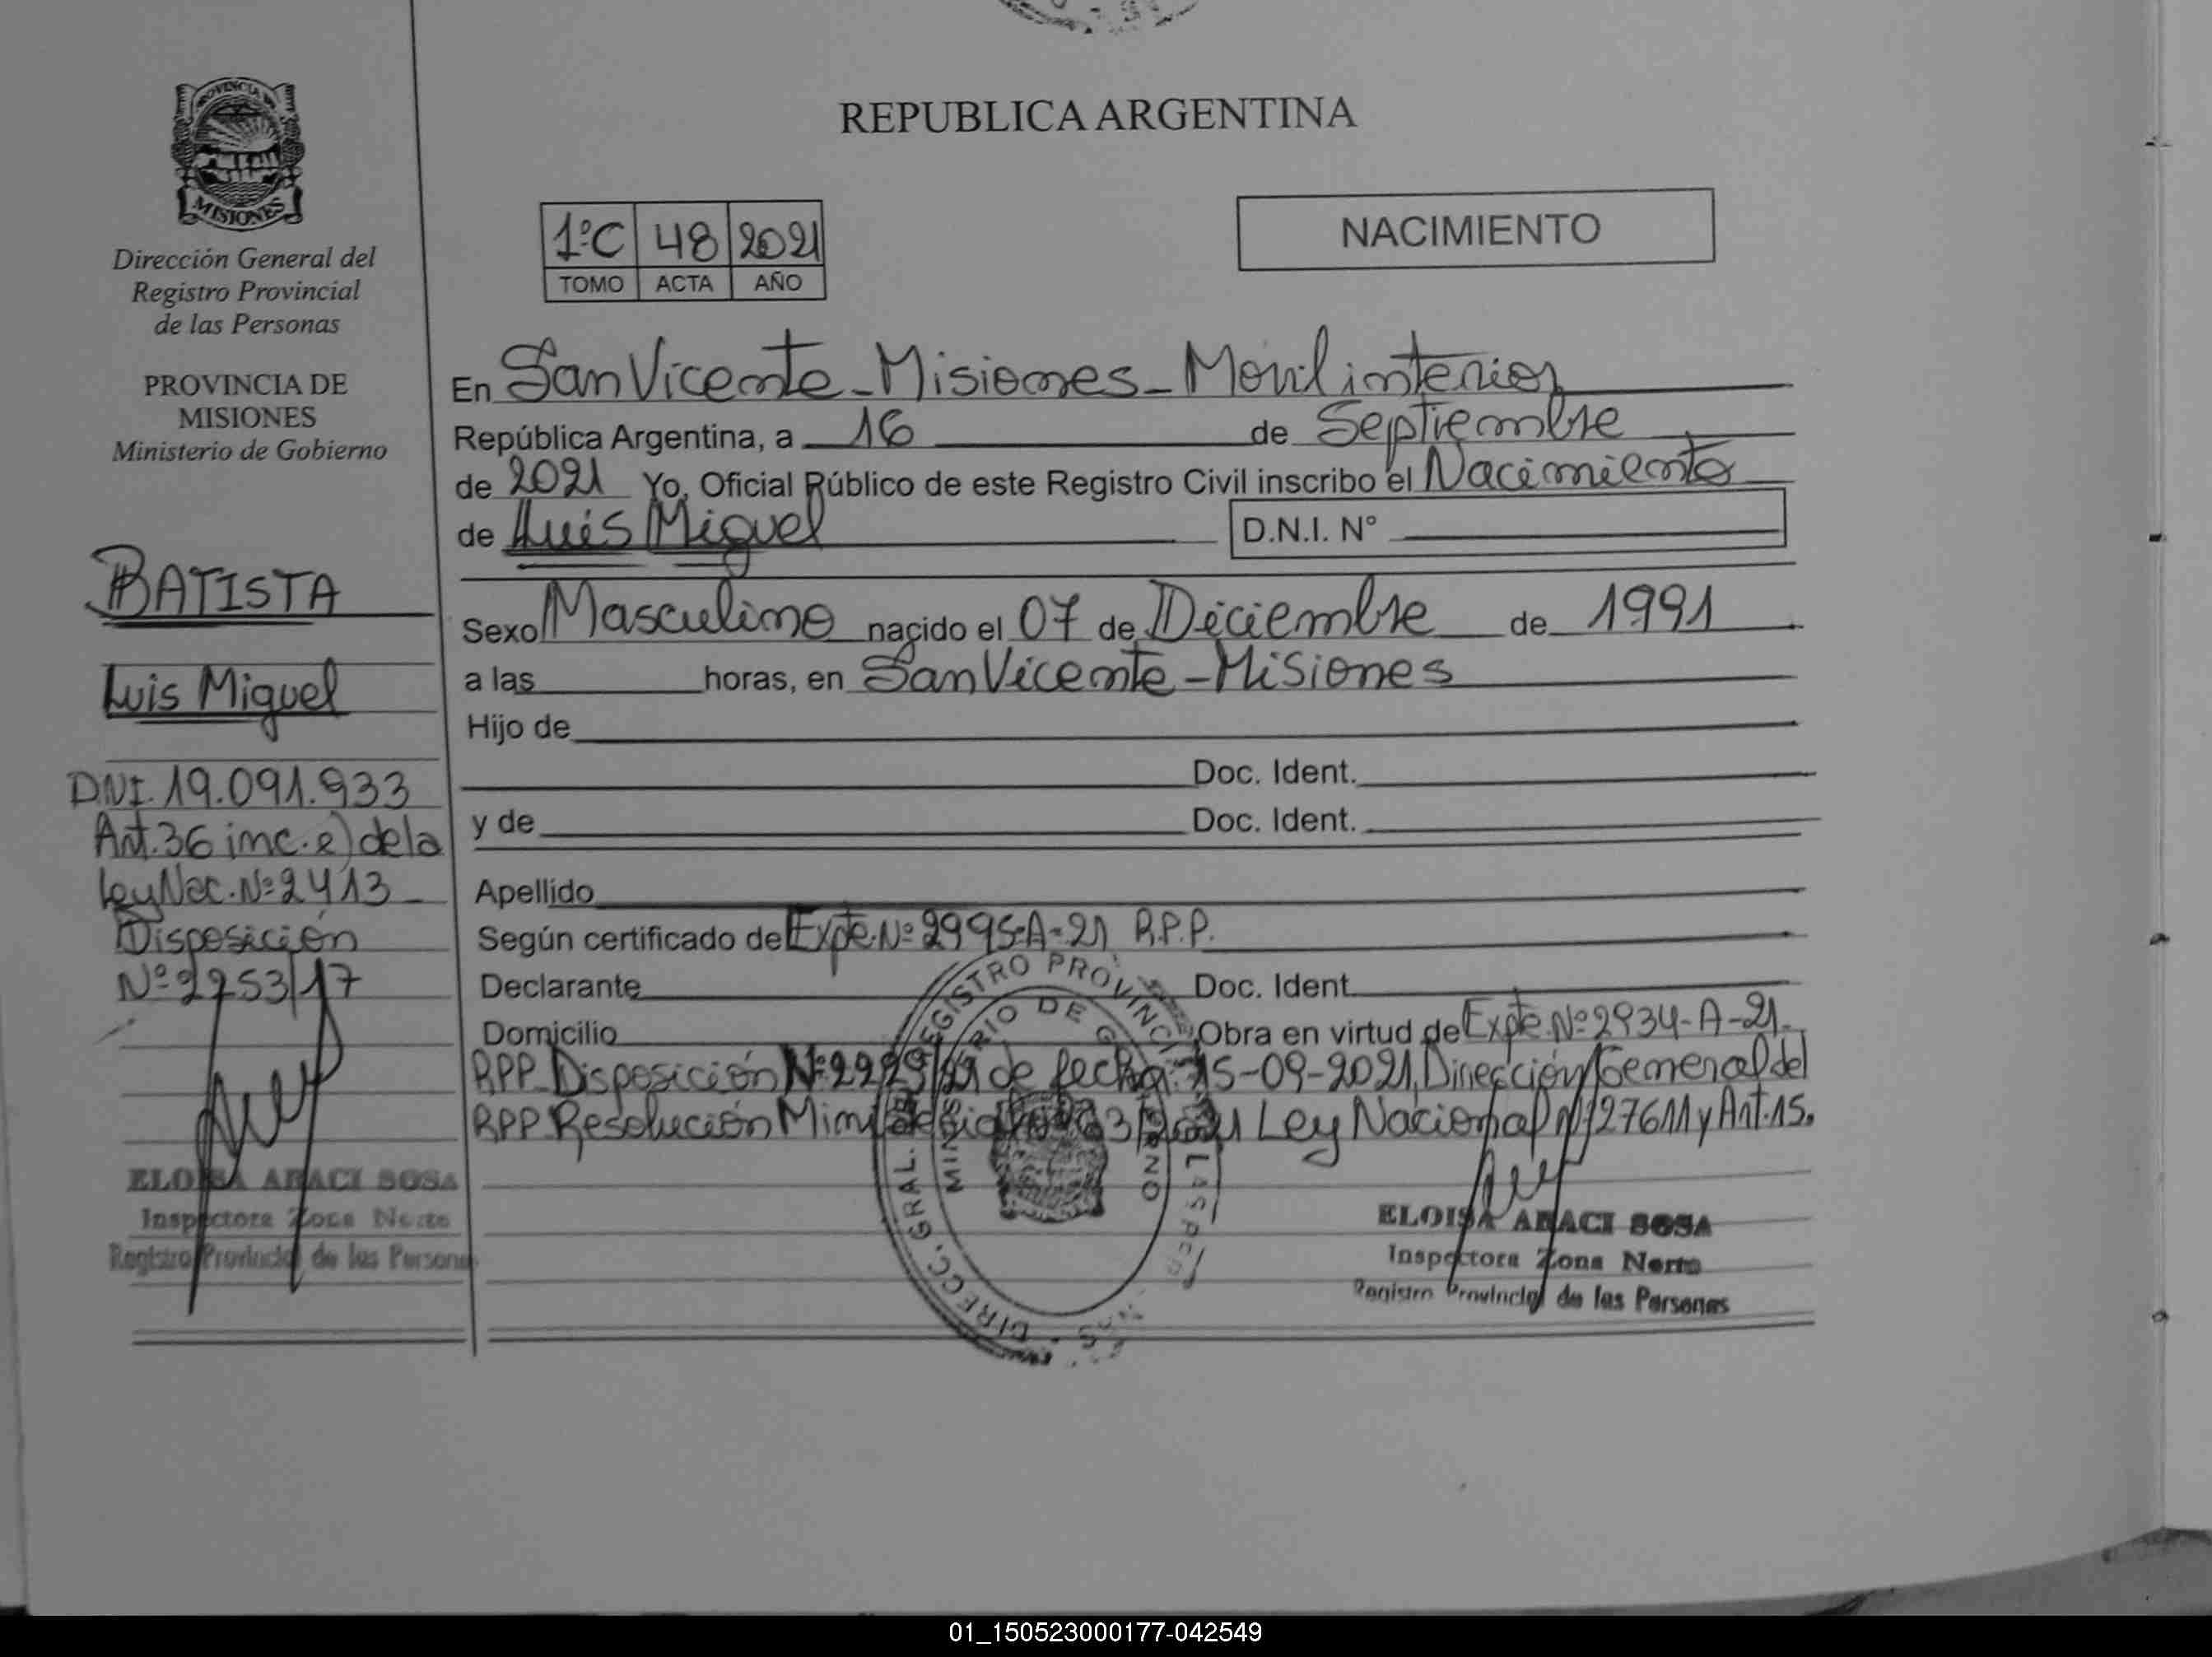 PROVINCIA DE
MISIONES
Dirección General del
Registro Provincial
de las Personas
PROVINCIA DE
MISIONES
Ministerio de Gobierno
BATISTA
Luis Miguel
DNI. 19.091.933
Art. 36 inc. e) de la
Ley Nac. Nº 2413
Disposición
Nº 2753/17
ELOISA ARACI SOSA
Inspectora Zona Norte
Registro Provincial de las Persona
REPUBLICA ARGENTINA
1ºC 48 2021
TOMO ACTA AÑO
NACIMIENTO
En San Vicente - Misiones - Movil interior
República Argentina, a 16 de Septiembre
de 2021 Yo, Oficial Público de este Registro Civil inscribo el Nacimiento
de Luis Miguel D.N.I. N°
Sexo Masculino nacido el 07 de Diciembre de 1991
a las horas, en San Vicente - Misiones
Hijo de
Doc. Ident.
y de Doc. Ident.
Apellido
Según certificado de Expte. Nº 2995-A-21 R.P.P.
Declarante Doc. Ident.
Domicilio Obra en virtud de Expte. Nº 2934-A-21.
RPP. Disposición de fecha: 15-09-2021, Dirección General del
RPP. Resolución Ley Nacional Nº 27611 y Art. 15.
DIRECC. GRAL. REGISTRO PROVINC
MINISTERIO DE
ELOISA ARACI SOSA
Inspectora Zona Norte
Registro Provincial de las Personas
01_150523000177-042549